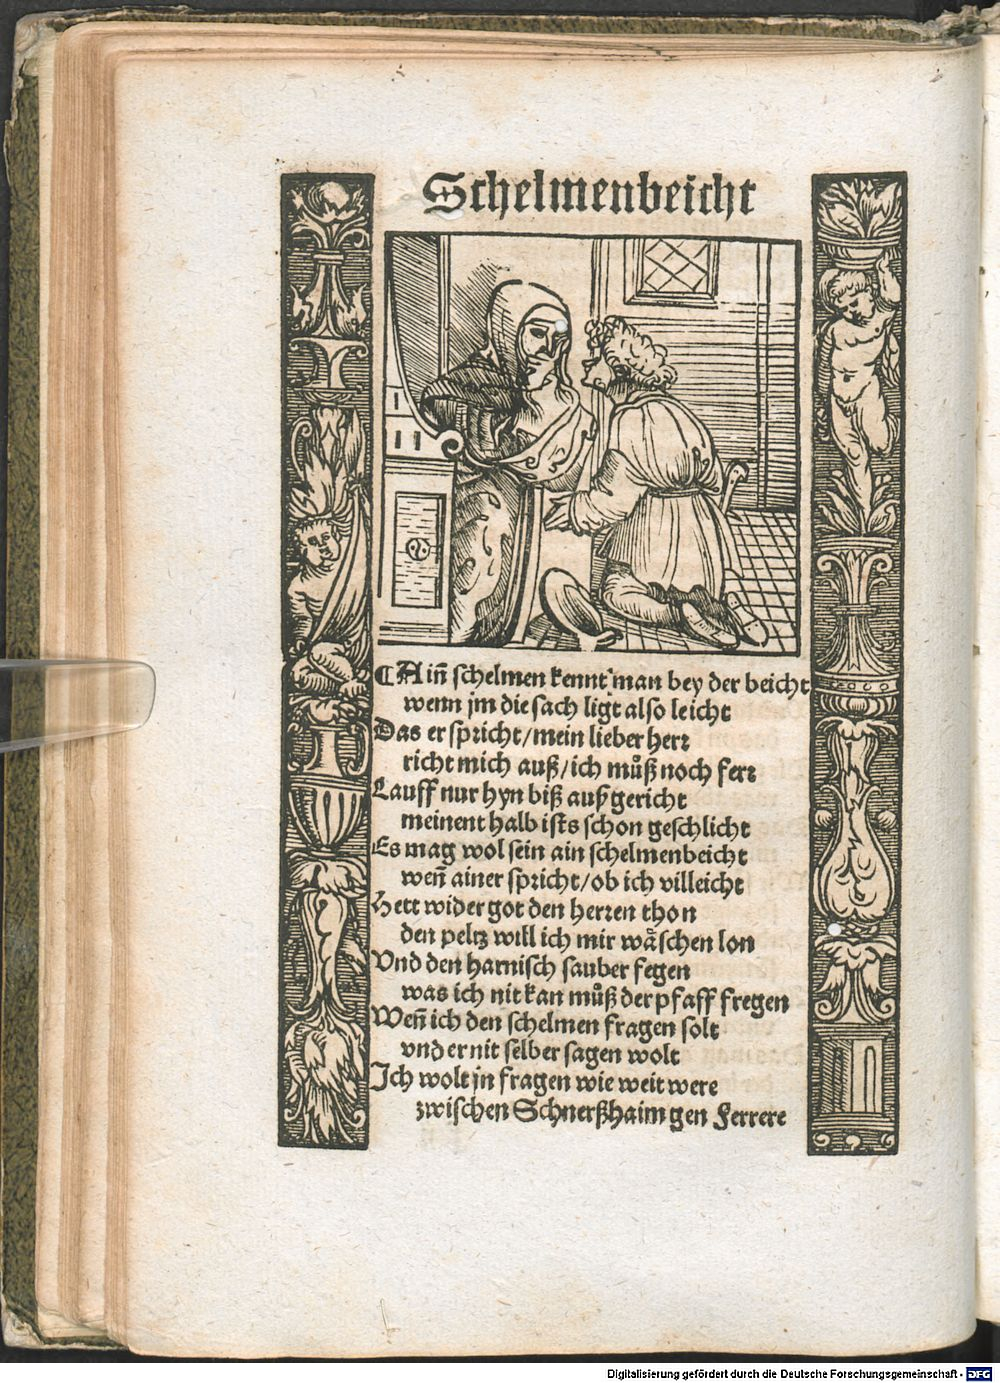 Schelmenbeicht
¶Aiñ schelmen kennt man bey der beicht
wenn jm die sach ligt also leicht
Das er spricht/mein lieber herr
richt mich auß/ich můß noch ferr
Lauff nur hyn biß außgericht
meinent halb ists schon geschlicht
Es mag wol sein ain schelmenbeicht
weñ ainer spricht/ob ich villeicht
Hett wider got den herren thon
den peltz will ich mir wäschen lon
Vnd den harnisch sauber fegen
was ich nit kan můß der pfaff fregen
Weñ ich den schelmen fragen solt
vnd er nit selber sagen wolt
Ich wolt jn fragen wie weit were
zwischen Schnerßhaim gen Ferrere
Digitalisierung gefördert durch die Deutsche Forschungsgemeinschaft - DFG